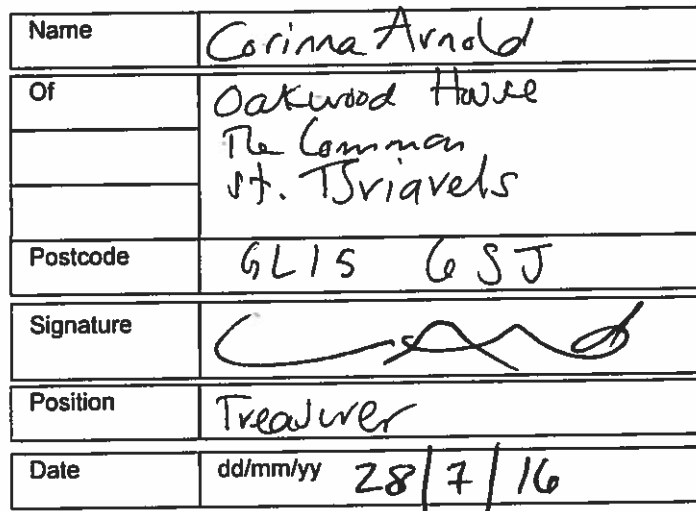 Name Corinna Arnold
Of Oakwood House
The Common
St. Briavels
Postcode GL15 6SJ
Signature
Position Treasurer
Date dd/mm/yy 28/7/16